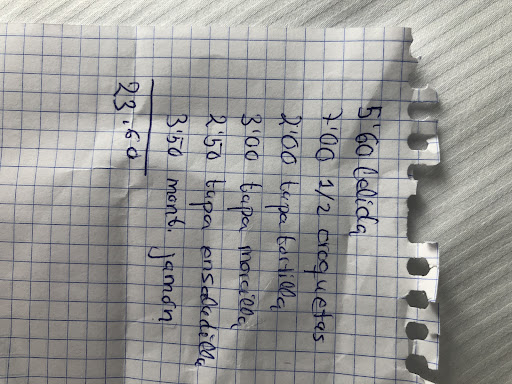 5'60 bebida
7'00 1/2 croquetas
2'00 tapa tortilla
3'00 tapa morcilla
2'50 tapa ensaladilla
3'50 mont. jamón
23'60